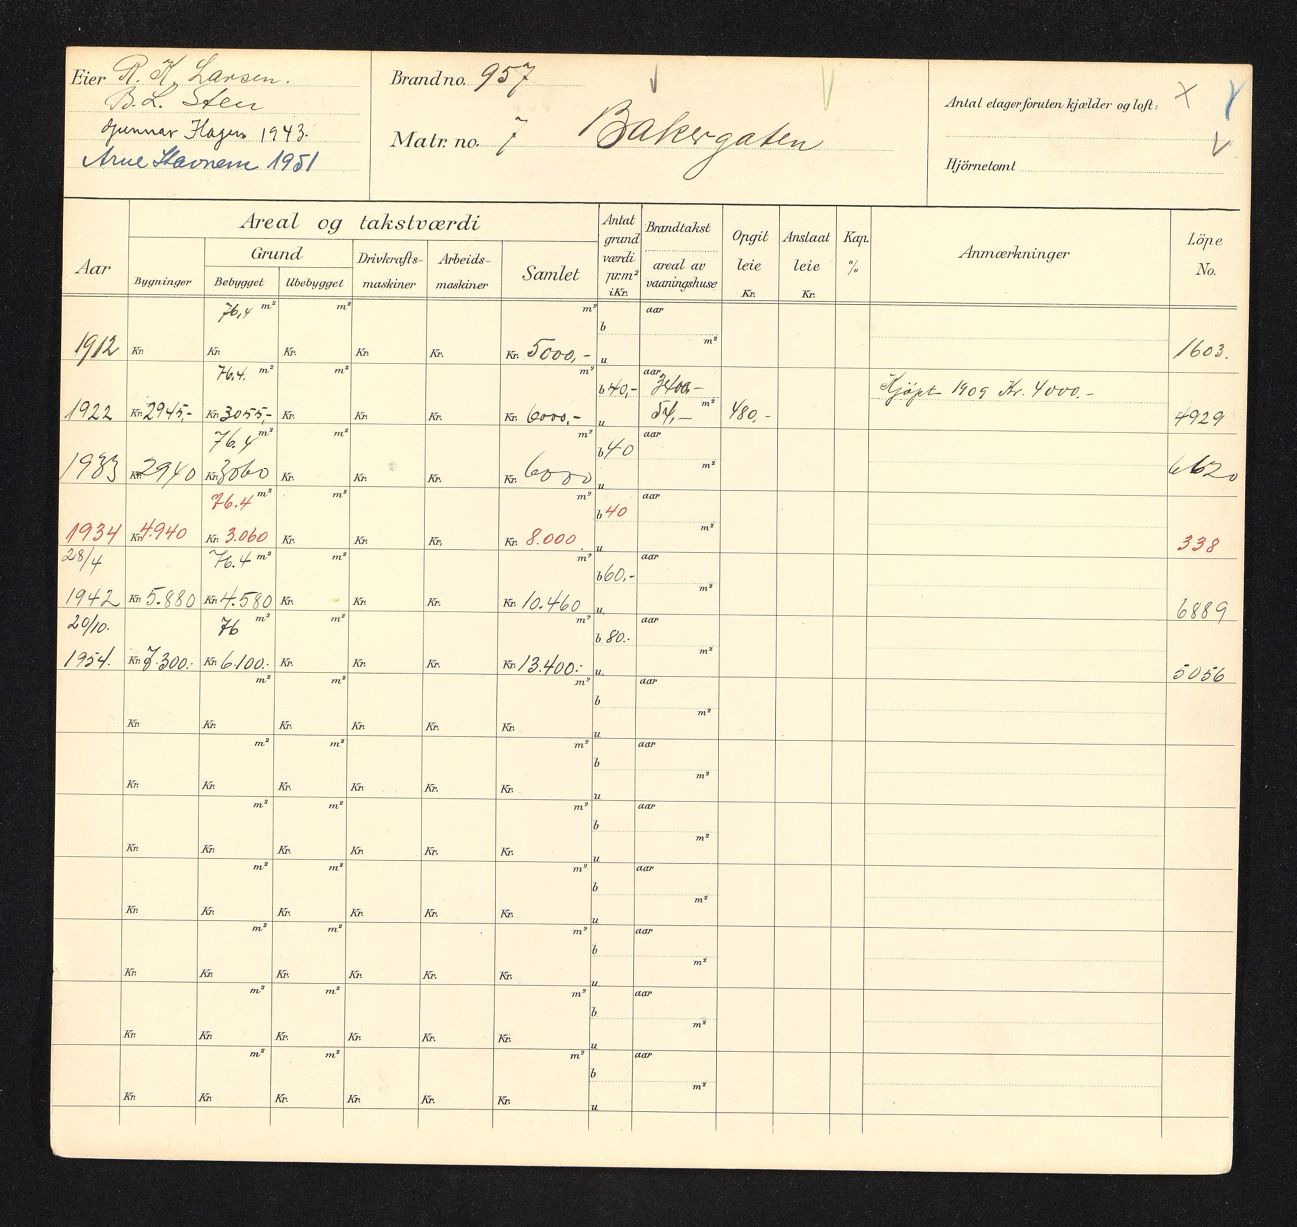 Eier R. K. Larsen.
B. L. Sten
Gunnar Hagen 1943.
Arne Stavnem 1951
Brand no. 957
Matr. no. 7 Bakergaten
Antal etager foruten kjælder og loft: X
Hjörnetomt
Aar
Areal og takstværdi
Bygninger
Grund
Bebygget
Ubebygget
Drivkrafts-
maskiner
Arbeids-
maskiner
Samlet
Antat
grund
værdi
pr.m²
i Kr.
Brandtakst
areal av
vaaningshuse
Opgit
leie
Kr.
Anslaat
leie
Kr.
Kap.
%
Anmærkninger
Löpe
No.
76,4 m² m² m² aar
b
m²
1912 Kr. Kr. Kr. Kr. Kr. Kr. 5000,- u 1603.
76.4. m² m² m² aar
b 40,- 3400,- Kjöpt 1909 Kr. 4000.-
1922 Kr. 2945,- Kr. 3055,- Kr. Kr. Kr. Kr. 6000,- u 54,- m² 480,- 4929
76.4 m² m² m² aar
b 40
m²
1933 Kr. 2940 Kr. 3060 Kr. Kr. Kr. Kr. 6000 u 6620
76.4 m² m² m² aar
b 40
m²
1934 Kr. 4.940 Kr. 3.060 Kr. Kr. Kr. Kr. 8.000 u 338
28/4 76.4 m² m² m² aar
b 60,-
m²
1942 Kr. 5.880 Kr. 4.580 Kr. Kr. Kr. Kr. 10.460 u 6889
20/10. 76 m² m² m² aar
b 80.-
m²
1954. Kr. 7.300.- Kr. 6.100.- Kr. Kr. Kr. Kr. 13.400.- u 5056
m² m² m² aar
b
m²
Kr. Kr. Kr. Kr. Kr. Kr. u
m² m² m² aar
b
m²
Kr. Kr. Kr. Kr. Kr. Kr. u
m² m² m² aar
b
m²
Kr. Kr. Kr. Kr. Kr. Kr. u
m² m² m² aar
b
m²
Kr. Kr. Kr. Kr. Kr. Kr. u
m² m² m² aar
b
m²
Kr. Kr. Kr. Kr. Kr. Kr. u
m² m² m² aar
b
m²
Kr. Kr. Kr. Kr. Kr. Kr. u
m² m² m² aar
b
m²
Kr. Kr. Kr. Kr. Kr. Kr. u